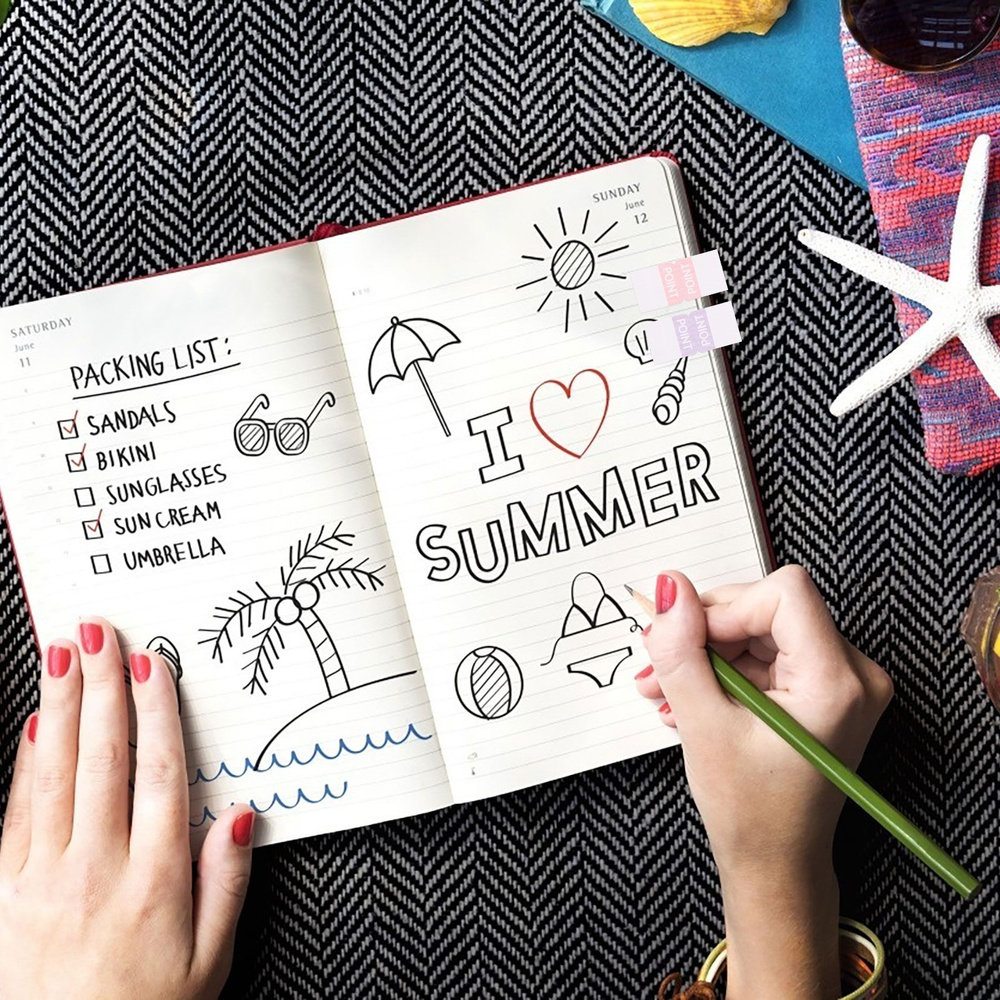 SATURDAY
June
11
PACKING LIST:
SANDALS
BIKINI
SUNGLASSES
SUN CREAM
UMBRELLA
SUNDAY
June
12
POINT
POINT
POINT
POINT
I
SUMMER